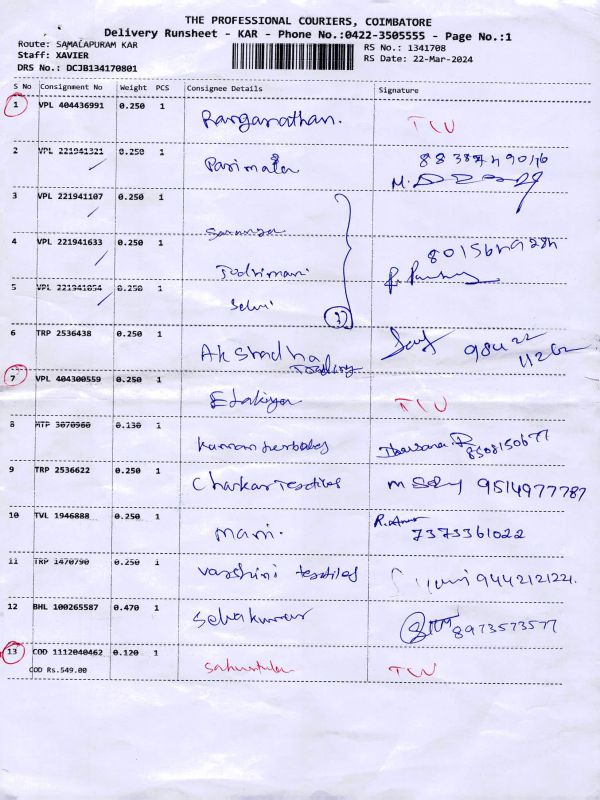 THE PROFESSIONAL COURIERS, COIMBATORE
Delivery Runsheet - KAR - Phone No.:0422-3505555 - Page No.:1
Route: SAMALAPURAM KAR
Staff: XAVIER
DRS No.: DCJB134170801
RS No.: 1341708
RS Date: 22-Mar-2024
S No Consignment No Weight PCS Consignee Details Signature
1 VPL 404436991 0.250 1 Ranganathan. TCU
2 VPL 221941321 0.250 1 Parimala
3 VPL 221941107 0.250 1
4 VPL 221941633 0.250 1 Jothimani
5 VPL 221941054 0.250 1 Selvi
6 TRP 2536438 0.250 1 Akshadha
7 VPL 404300559 0.250 1 TCU
8 MTP 3070960 0.130 1 Kannan herbales 8508150677
9 TRP 2536622 0.250 1 Charkar Textiles 9514977787
10 TVL 1946888 0.250 1 Mani. 7373361022
11 TRP 1470790 0.250 1 Varshini textiles 9442121224
12 BHL 100265587 0.470 1 Selvakumar 8973573577
13 COD 1112040462 0.120 1 TCU
COD Rs.549.00